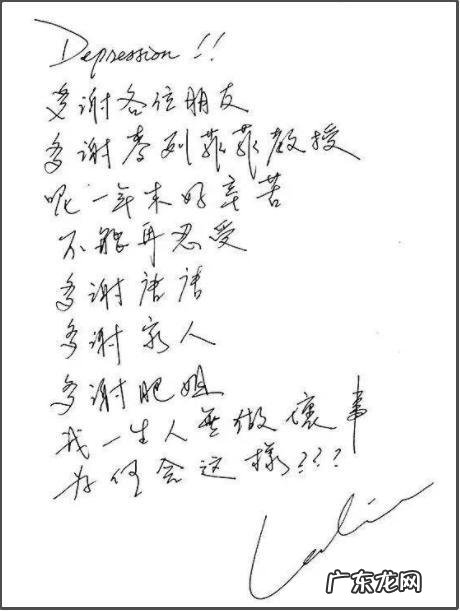 Depression !!
多谢各位朋友
多谢麦列菲菲教授
呢一年来好辛苦
不能再忍受
多谢唐唐
多谢家人
多谢肥姐
我一生人無做壞事
为何会这樣???
Leslie
广东龙网